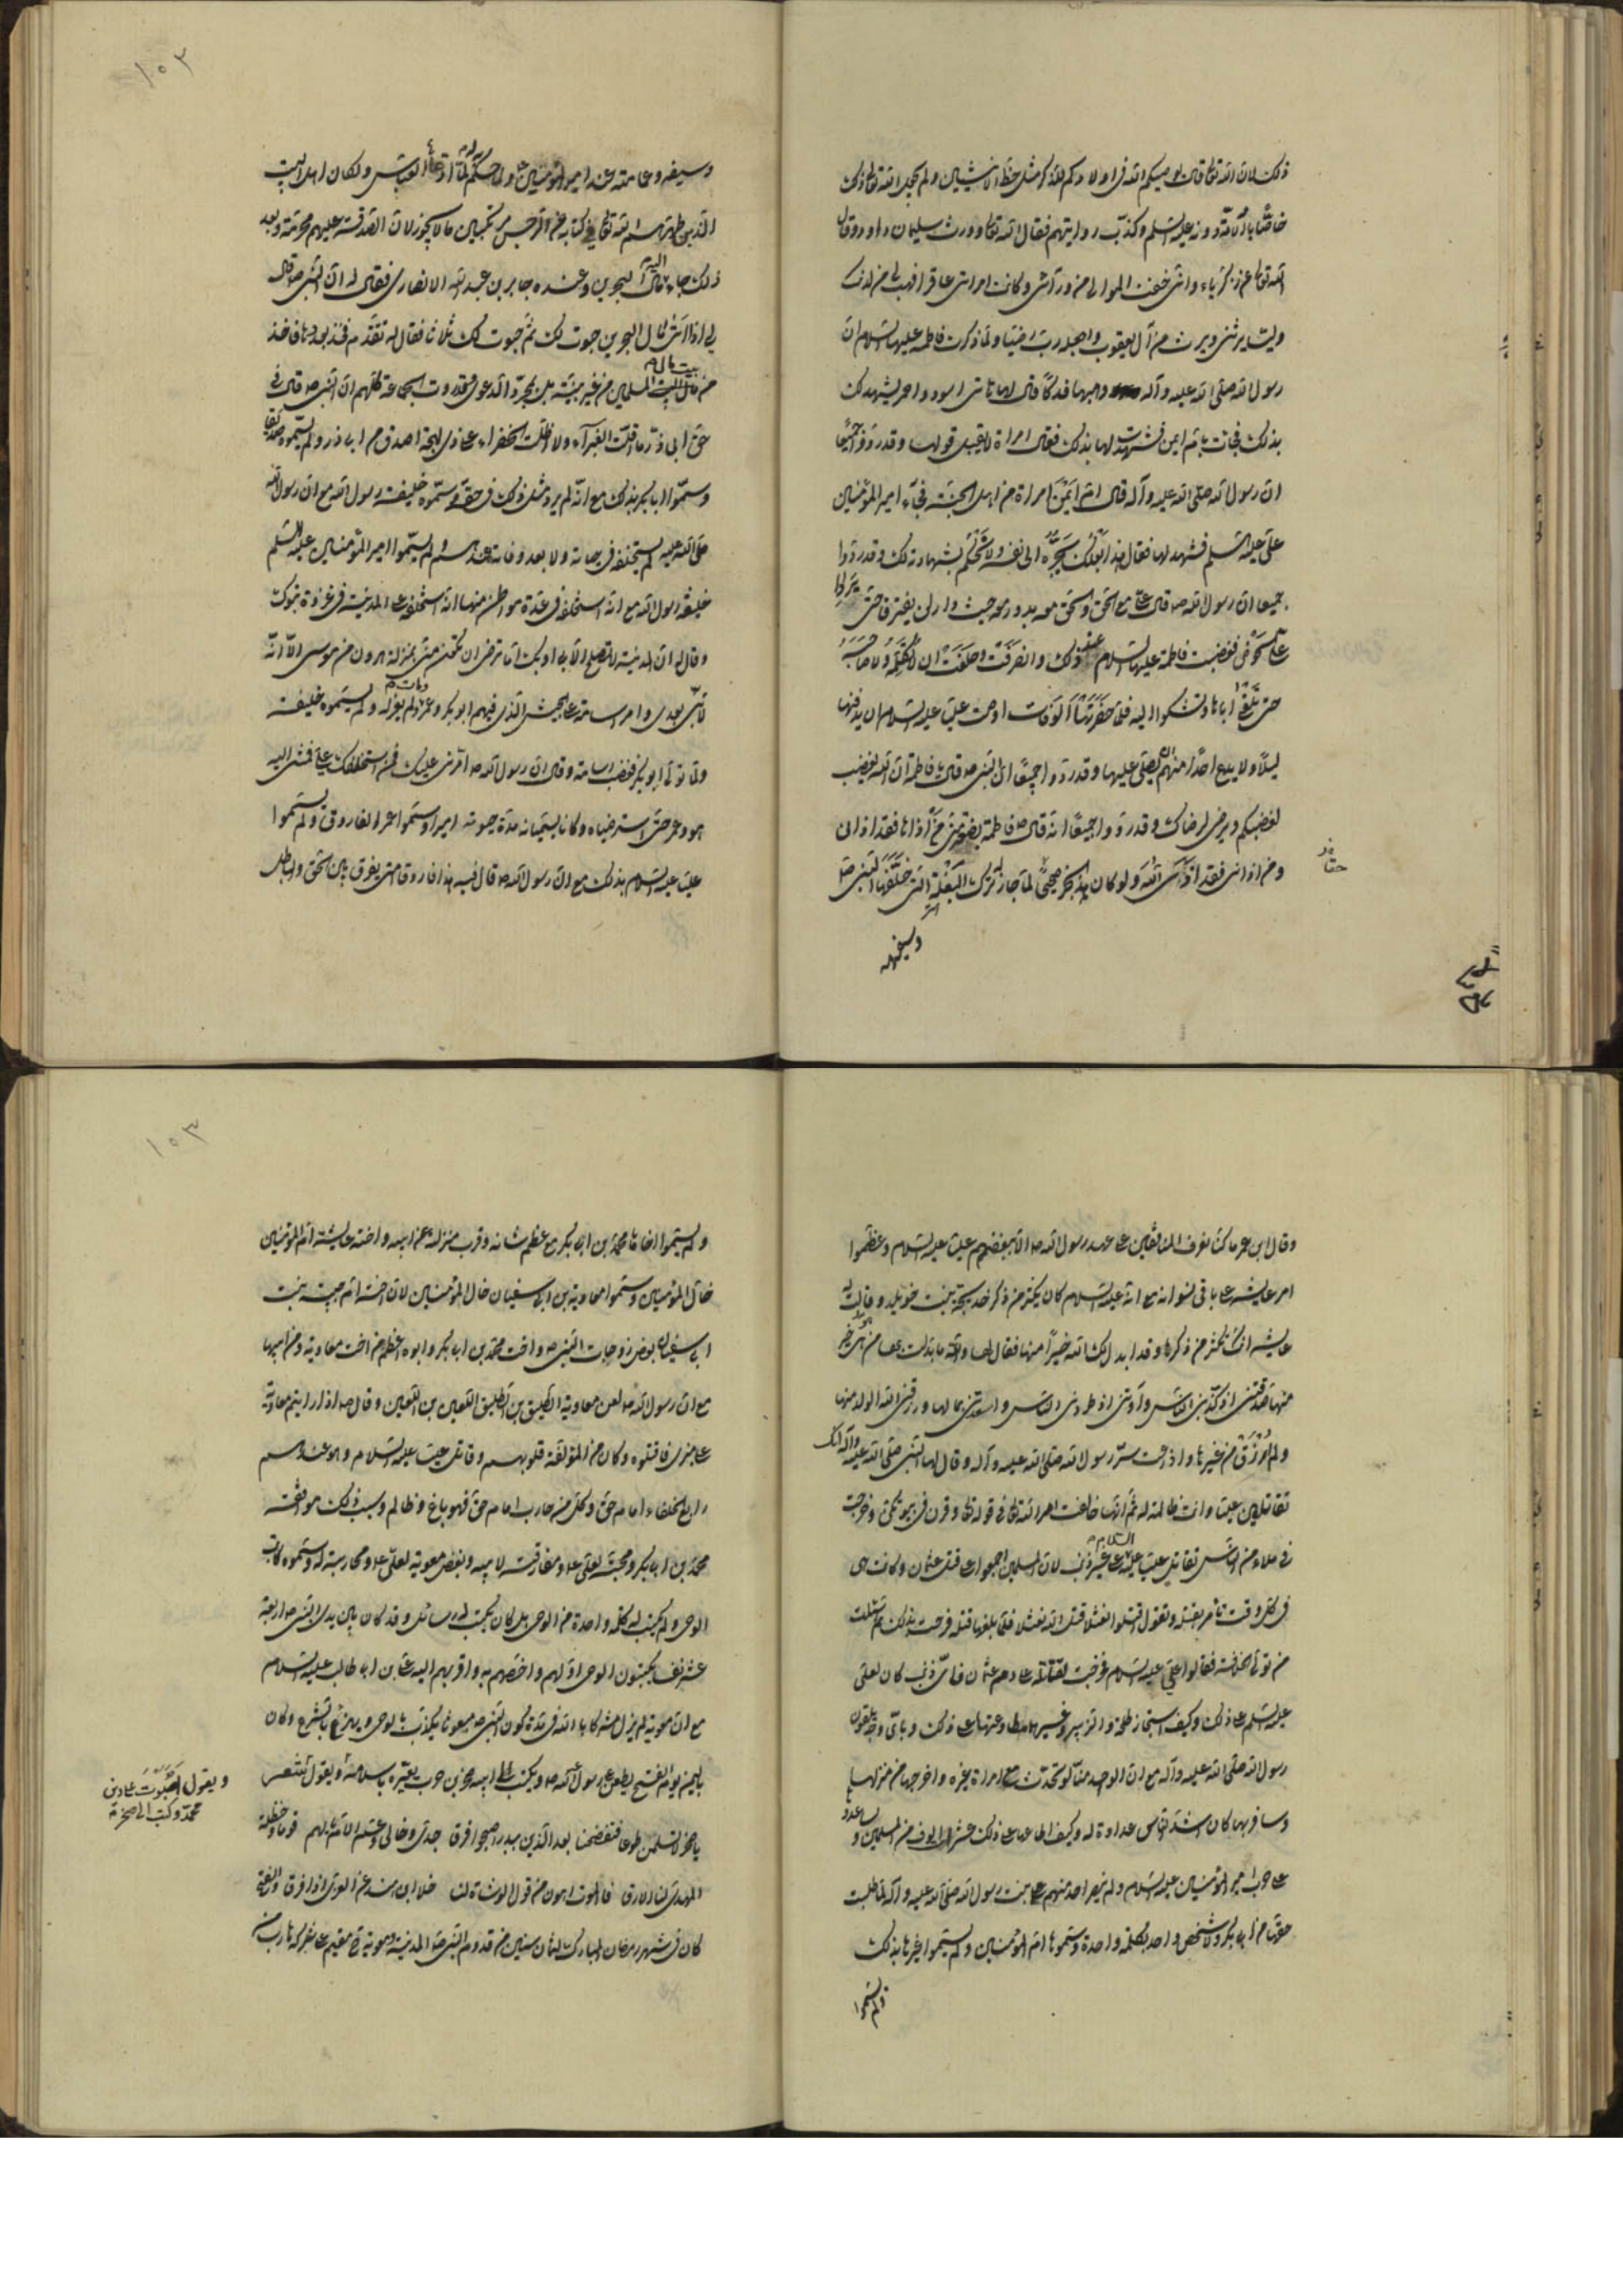 ذلك لان الله تعالى قال يوصيكم الله فى اولادكم للذكر مثل حظ الانثيين ولم يجعل الله تعالى ذلك
خاصا بالامة دونه عليه السلم وكذب روايتهم فقال الله تعالى وورث سليمان داود وقال
الله تعالى عن زكرياء وانى خفت الموالى من ورآئى وكانت امراتى عاقرا فهب لى من لدنك
وليا يرثنى ويرث من آل يعقوب واجعله رب رضيا ولما ذكرت فاطمه عليها السلام ان
رسول الله صلى الله عليه وآله وهبها فدكا قال لها هاتى اسود واحمر يشهد لك
بذلك فجائت بام ايمن فشهدت لها بذلك فقال امراة لا يقبل قولها وقد رووا جميعا
ان رسول الله صلى الله عليه وآله قال ام ايمن امراة من اهل الجنة فجاء امير المؤمنين
على عليه السلم فشهد لها فقال هذا بعلك يجره الى نفسه ولا نحكم بشهادته لك وقد رووا
جميعا ان رسول الله ص قال على مع الحق والحق معه يدور معه حيث دار لن يفترقا حتى يردا
على الحوض فغضبت فاطمة عليها السلام عند ذلك وانصرفت وحلفت ان لا تكلمه ولا صاحبه
حتى تلقى اباها وتشكوا اليه فلما حضرتها الوفات اوصت عليا عليه السلام ان يدفنها
ليلا ولا يدع احدا منهم يصلى عليها وقد رووا جميعا ان النبى ص قال يا فاطمة ان الله يغضب
لغضبك ويرضى لرضاك وقد رووا جميعا انه قال ص فاطمة بضعة منى من آذاها فقد اذانى
ومن اذانى فقد اذى الله ولو كان هذا الخبر صحيحا لما جاز له ترك البغلة التى خلفها النبى صلى
وسيفه
وسيفه وعمامته عند امير المؤمنين ولما حكم له بها لما ادعاها العباس ولكان اهل البيت
الذين طهرهم الله تعالى فى كتابه من الرجس مرتكبين ما لا يجوز لان الصدقة عليهم محرمة وبعد
ذلك جاء اليه مال البحرين وعنده جابر بن عبد الله الانصارى فقال له ان النبى ص قال
لى اذا اتى مال البحرين حبوت لك ثم حبوت لك ثلاثا فقال له تقدم فخذ بعددها فاخذ
من بيت مال المسلمين من غير بينة بل بمجرد الدعوى وقد روت الجماعة كلهم ان النبى ص قال فى
حق ابى ذر ما اقلت الغبرآء ولا اظلت الخضراء على ذى لهجة اصدق من ابى ذر ولم يسموه صديقا
وسموا ابا بكر بذلك مع انه لم يرو مثل ذلك فى حقه وسموه خليفة رسول الله مع ان رسول الله
صلى الله عليه لم يستخلفه فى حياته ولا بعد وفاته عندهم ولم يسموا امير المؤمنين عليه السلم
خليفة رسول الله مع انه استخلفه فى عدة مواطن منها انه استخلفه على المدينة فى غزوة تبوك
وقال له ان المدينة لا تصلح الا بى او بك اما ترضى ان تكون منى بمنزلة هرون من موسى الا انه
لا نبى بعدى وامر اسامة على الجيش الذى فيهم ابو بكر وعمر ومات ولم يعزله ولم يسموه خليفة
ولما تولى ابو بكر غضب اسامة وقال ان رسول الله ص امرنى عليك فمن استخلفك على فمشى اليه
هو وعمر حتى استرضياه وكانا يسميانه مدة حيوته اميرا وسموا عمر الفاروق ولم يسموا
عليا عليه السلام بذلك مع ان رسول الله ص قال فيه هذا فاروق امتى يفرق بين الحق والباطل
وقال ابن عمر ما كنا نعرف المنافقين على عهد رسول الله ص الا ببغضهم عليا عليه السلام وعظموا
امر عايشه على باقى نسوانه مع انه عليه السلام كان يكثر من ذكر خديجة بنت خويلد وقالت له
عايشه انك تكثر من ذكرها وقد ابدلك الله خيرا منها فقال لها والله ما بدلت بها من هو خير
منها صدقتنى اذ كذبنى الناس وآوتنى اذ طردنى الناس واسعدتنى بمالها ورزقنى الله الولد منها
ولم ارزق من غيرها واذاعت سر رسول الله صلى الله عليه وآله وقال لها النبى صلى الله عليه وآله انك
تقاتلين عليا وانت ظالمة له ثم انها خالفت امر الله تعالى فى قوله تعالى وقرن فى بيوتكن وخرجت
فى ملاء من الناس تقاتل عليا عليه السلام على غير ذنب لان المسلمين اجمعوا على قتل عثمان وكانت هى
فى كل وقت تامر بقتله وتقول اقتلوا نعثلا قتل الله نعثلا فلما بلغها قتله فرحت بذلك ثم سئلت
من تولى الخلافة فقالوا على عليه السلام فخرجت لقتاله على دم عثمان فاى ذنب كان لعلى
عليه السلم على ذلك وكيف استجاز طلحة والزبير وغيرهما مطاوعتها على ذلك وباى وجه يلقون
رسول الله صلى الله عليه وآله مع ان الواحد منا لو تحدث مع امراة غيره واخرجها من منزلها
وسافر بها كان اشد الناس عداوة له وكيف اطاعها على ذلك عشرات الوف من المسلمين وساعدوها
على حرب امير المؤمنين عليه السلام ولم ينصر احد منهم بنت رسول الله صلى الله عليه وآله لما طلبت
حقها من ابى بكر ولا شخص واحد بكلمة واحدة وسموها ام المؤمنين ولم يسموا غيرها بذلك
ولم يسموا
ولم يسموا اخاها محمد بن ابى بكر مع عظم شانه وقرب منزلته من ابيه واخته عايشة ام المؤمنين
خال المؤمنين وسموا معاوية بن ابى سفيان خال المؤمنين لان اخته ام حبيبه بنت
ابى سفيان بعض زوجات النبى ص واخت محمد بن ابى بكر وابوه اعظم من اخت معاوية ومن ابيها
مع ان رسول الله ص لعن معاوية الطليق بن الطليق اللعين بن اللعين وقال ص اذا رايتم معاوية
على منبرى فاقتلوه وكان من المؤلفة قلوبهم وقاتل عليا عليه السلام وهو عندهم
رابع الخلفاء امام حق وكل من حارب امام حق فهو باغ وظالم وسبب ذلك موافقته
محمد بن ابى بكر ومحبته لعلى ع ومفارقته لابيه وبغض معوية لعلى ع ومحاربته له وسموه كاتب
الوحى ولم يكتب له كلمة واحدة من الوحى بل كان يكتب له رسائل وقد كان بين يدى النبى ص اربعة
عشر نفسا يكتبون الوحى اولهم واخصهم به واقربهم اليه على بن ابى طالب عليه السلام
مع ان معوية لم يزل مشركا بالله فى مدة كون النبى ص مبعوثا يكذب بالوحى ويهزء بالشرع وكان
باليمن يوم الفتح يطعن على رسول الله ص ويكتب الى ابيه صخر بن حرب يعيره باسلامه ويقول شعر
ويقول اصبوت على دين
محمد وكتب الى صخر
يا صخر لا تسلمن طوعا فتفضحنا بعد الذين ببدر اصبحوا فرقا جدى وخالى وعم الام لهم قوما وحنظلة
المهدى لنا الارقا فالموت اهون من قول الوشاة لنا خلا ابن هند عن العزى اذا فرقا والفتح
كان فى شهر رمضان المبارك لثمان سنين من قدوم النبى ص المدينة ومعوية مقيم على شركه هارب من
حقا
١٠٢
١٠٣